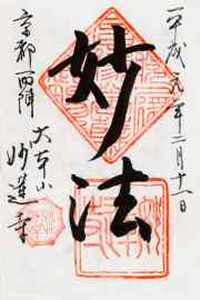 平成元年二月十一日
妙法
京都西陣
大本山
妙蓮寺